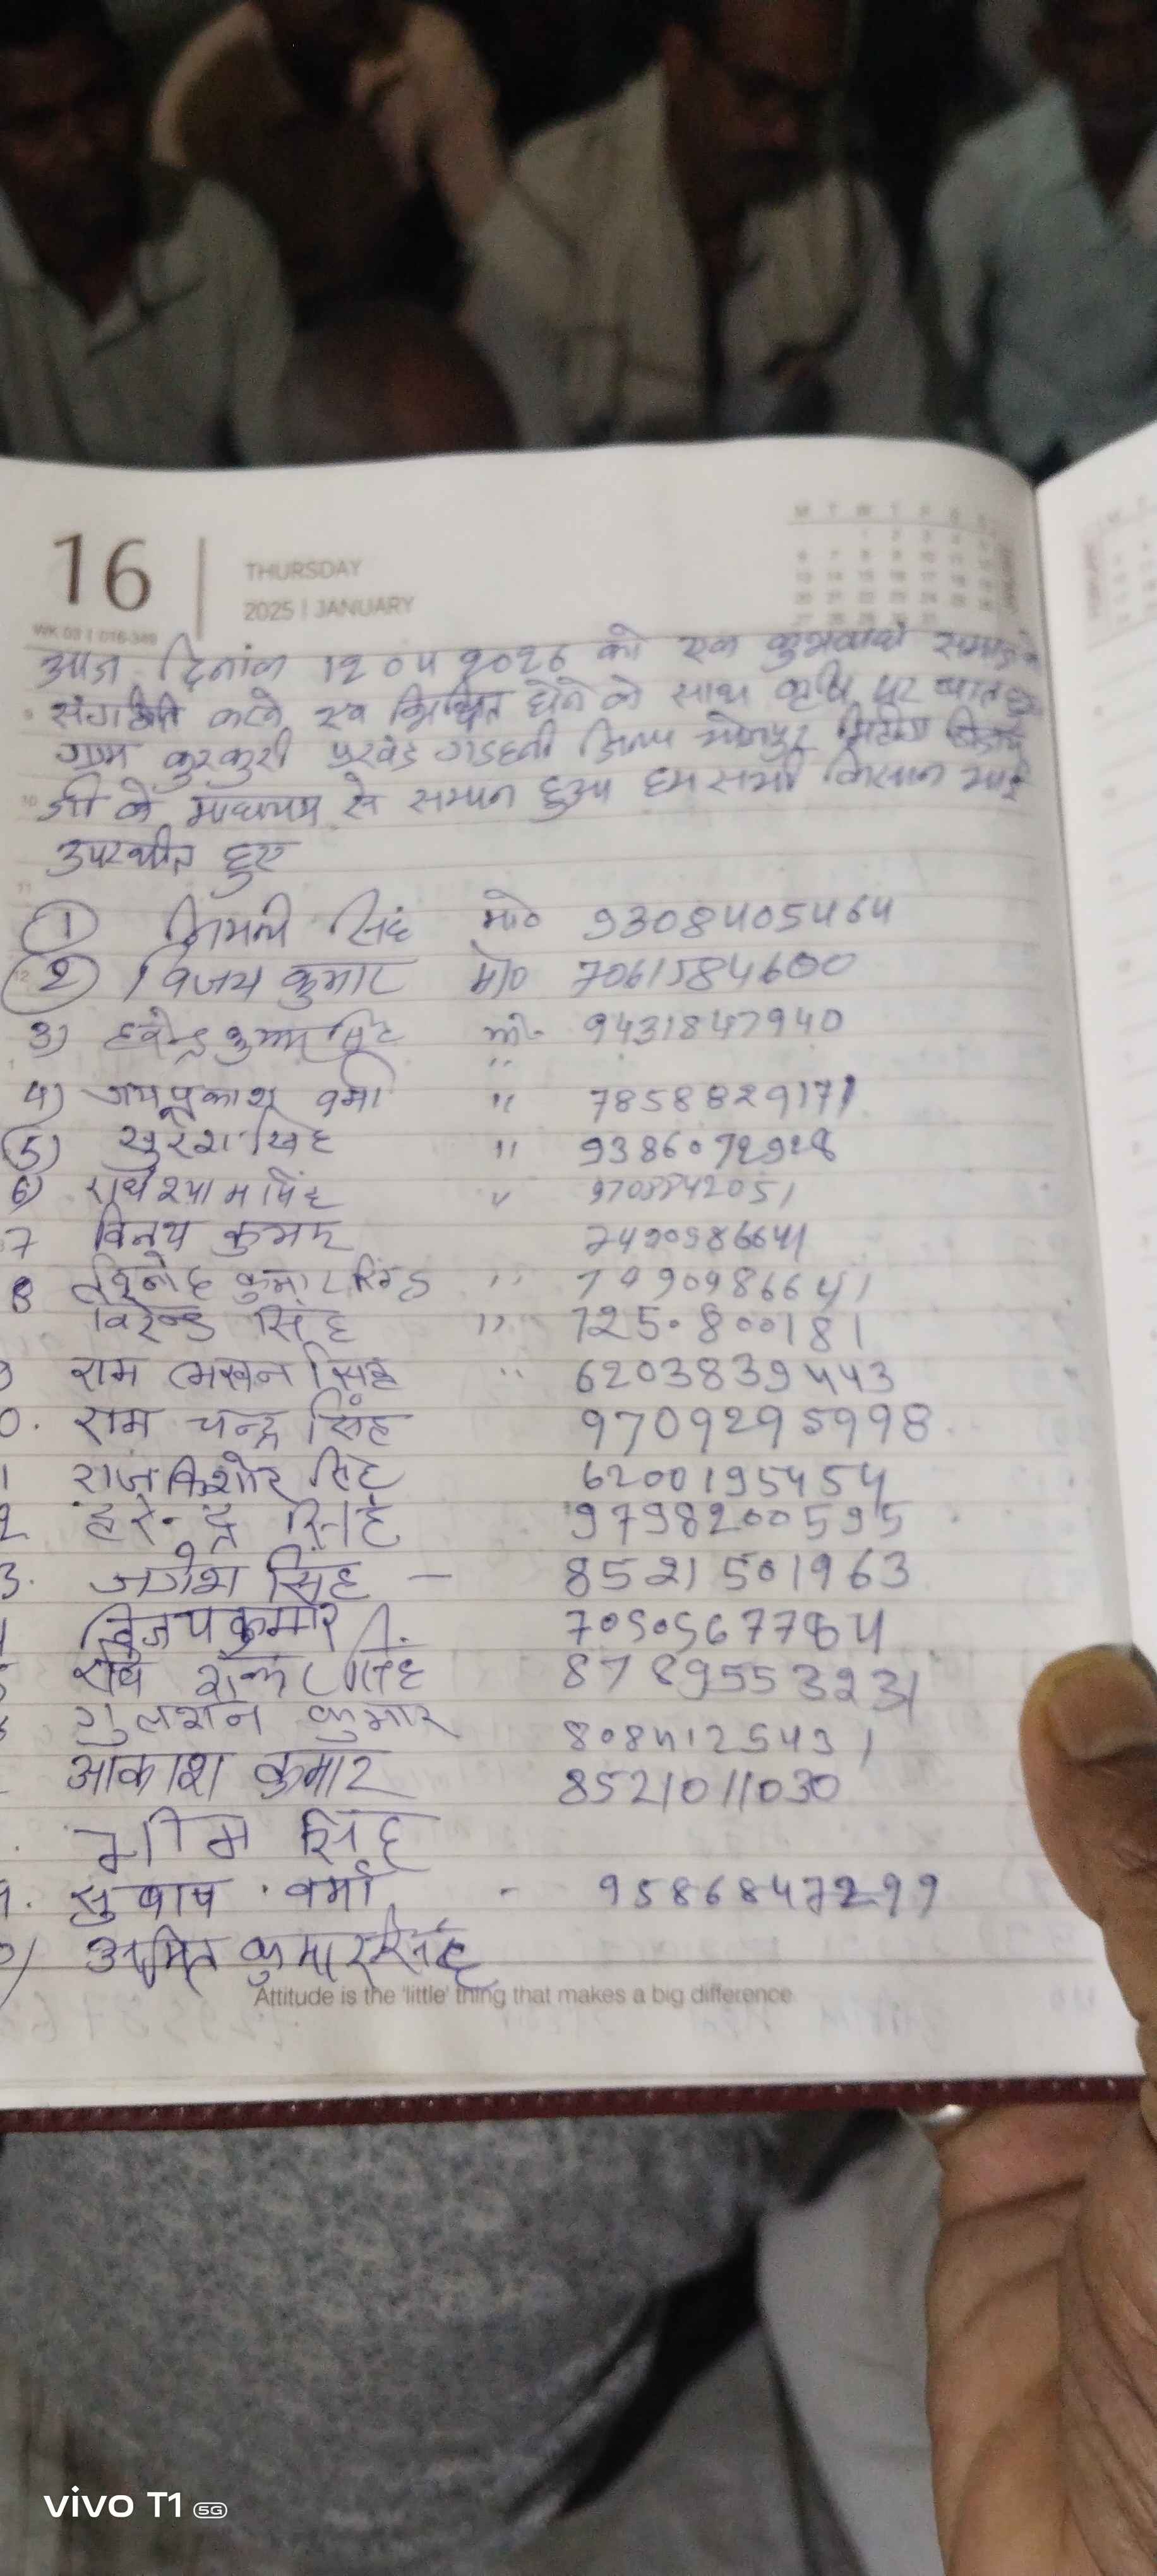 16
THURSDAY
2025 | JANUARY
M T W T F S S
आज दिनांक 12 04 2026 को एक कुशवाहा समाज के
संगठीत करने एवं को साथ कृषि पर बात
ग्राम कुरकुरी प्रखंड गडहनी जिला भोजपुर
जी के माधायम से सम्पन हुआ हम सभी किसान भाई
उपस्थीत हुए
1 सिंह मो० 9308405464
2 विजय कुमार मो० 7061584600
3) कुमार सिंह मो०- 9431847940
4) जयप्रकाश वर्मा " 7858829171
5) सुरेश सिंह " 9386072928
6) राधेश्याम सिंह " 9708842051
7 विनय कुमार
8 कुमार सिंह " 7909086641
विरेन्द्र सिंह " 7250800181
राम लखन सिंह " 6203839443
0. राम चन्द्र सिंह 9709295998
1 राज किशोर सिंह 6200195454
2 हरेन्द्र सिंह 9798200595
3. जगेश सिंह — 8521501963
विजय कुमार 7050567784
सिंह 8789553231
गुलशन कुमार 8084125431
आकाश कुमार 8521011030
भीम सिंह
9. सुबाष वर्मा - 9586847299
0) अमित कुमार सिंह
Attitude is the 'little' thing that makes a big difference
vivo T1 5G